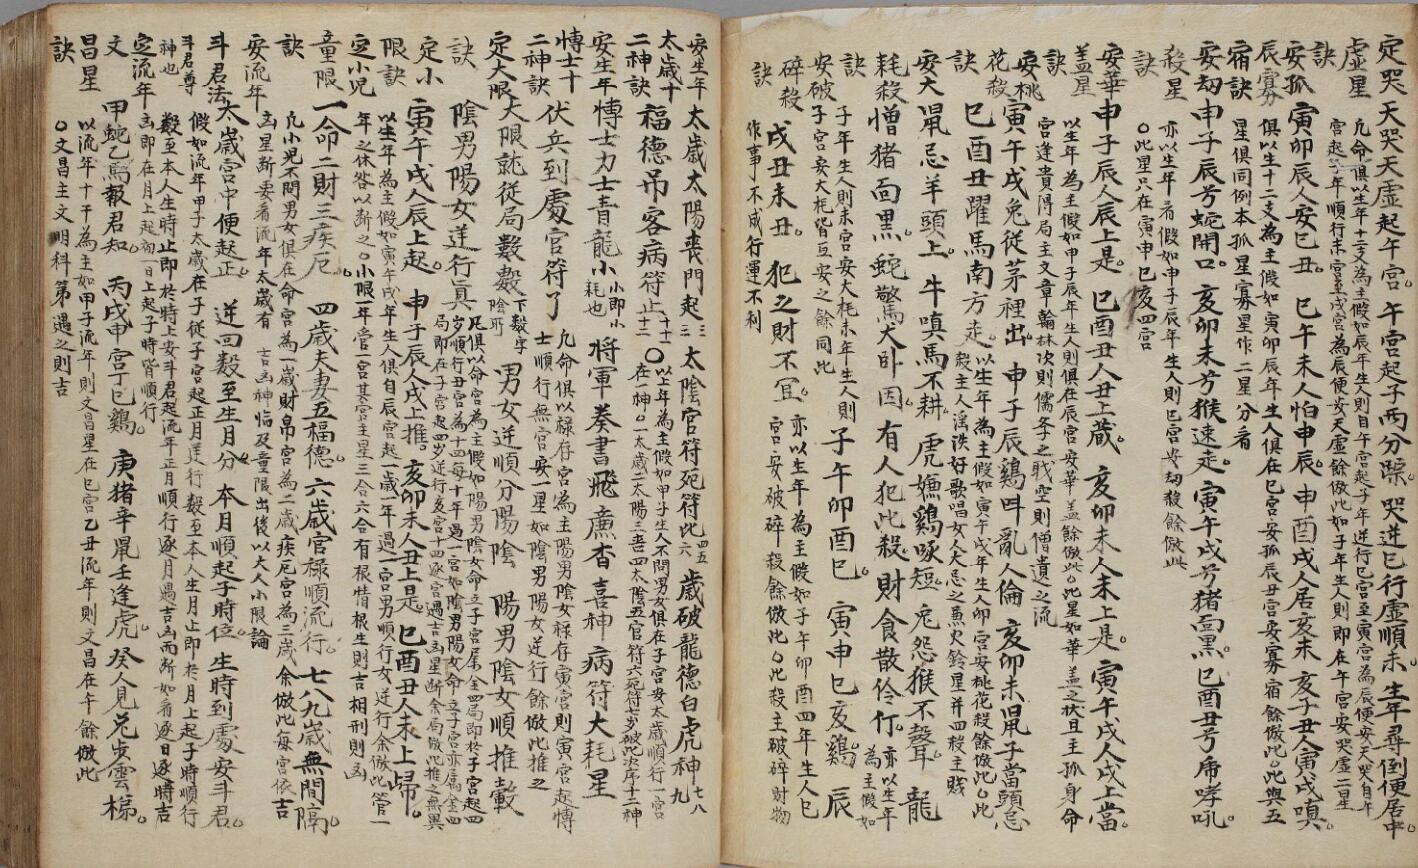 定哭 天哭天虛起午宮。午宮起子两分踪。哭逆巳行虛順未。生年尋到便居中。
虛星 凢命俱以生年十二支為主假如辰年生人則自午宮起子年逆行巳宮至寅宮為辰便安天哭自午
訣 宮起子年順行未宮至戌宮為辰便安天虛餘倣此如子年生人則即在午宮安哭虛二星
安孤 寅卯辰人安巳丑。巳午未人怕申辰。申酉戌人居亥未。亥子丑人寅戌嗔。
辰寡 俱以生十二支為主假如寅卯辰年生人俱在巳宮安孤辰丑宮安寡宿餘倣此。此與五
宿訣 星俱同例本孤星寡星作二星分看
安刼 申子辰兮蛇開口。亥卯未兮猴速走。寅午戌兮猪面黑。巳酉丑兮虎哮吼。
殺星 亦以生年看假如申子辰年生人則巳宮安刼殺餘倣此
訣 。此星只在寅申巳亥四宮
安華 申子辰人辰上是。巳酉丑人丑上藏。亥卯未人未上是。寅午戌人戌上當。
盖星 以生年為主假如甲子辰年生人則俱在辰宮安華盖餘倣此。此星如華盖之狀且主孤身命
訣 宮逢貴得局主文章翰林次則儒予之職空則僧道之流
安桃 寅午戌兔從茅裡出。申子辰鷄呌亂人倫。亥卯未鼠子當頭忌
花殺 巳酉丑躍馬南方走。以生年為主假如寅午戌年生人卯宮安桃花殺餘倣此。此
訣 殺主人滛泆好歌唱女人大忌之兼火鈴星并四殺主賤
安大 鼠忌羊頭上。牛嗔馬不耕。虎嫌鷄啄短。兎怨猴不聲。龍
耗殺 憎猪面黑。蛇驚犬卧因。有人犯此殺。財食散伶仃。亦以生年為主假如
訣 子年生人則未宮安大耗未年生人則
安破 子宮安大耗皆互安之餘同此 子午卯酉巳。寅申巳亥鷄。辰
碎殺 戌丑未丑。犯之財不冝。亦以生年為主假如子午卯酉四年生人巳宮安破碎殺餘倣此。此殺主破碎財物
訣 作事不成行運不利
安生年 太歲太陽喪門起三 太陰官符死符比四五六 歲破龍德白虎神七八九
太歲十 福德吊客病符止十十一十二 。以上年為主假如甲子生人不問男女俱在子宮安太歲順行一宮
二神訣 在一神。一太歲二太陽三喪四太陰五官符六死符七歲破此次序十二神
安生年 愽士力士青龍小小即小耗也 將軍奏書飛廉杏 喜神病符大耗星
愽士十 伏兵到處官符了 凢命俱以禄存宮為主陽男陰女禄存寅宮則寅宮起愽
二神訣 士順行無宮安一星如陰男陽女逆行餘倣此推之
定大限 大限就從局數數下數字陰呼 男女逆順分陽陰 陽男陰女順推載
訣 陰男陽女逆行真 凢俱以命宮為主假如陽男陰女命立子宮屬金四局即於子宮起四歲順行丑宮為十四每十年過一宮如陰男陽女命立子宮亦屬金四局即在子宮起四歲逆行亥宮十四逐宮過吉凶星断餘局倣此推之無異
定小 寅午戌人辰上起。申子辰人戌上推。亥卯未人丑上是。巳酉丑人未上歸。
限訣 以生年為主假如寅午戌年生人俱自辰宮起一歲一年過一宮男順行女逆行余倣此管一
年之休咎以断之。小限一年管一宮其宮主星三合六合有根情根生則吉相刑則凶
定小児 一命二財三疾厄。四歲夫妻五福德。六歲官禄順流行。七八九歲無間隔。
童限 凢小児不問男女俱在命宮為一歲財帛宮為二歲疾厄宮為三歲余倣此每宮依吉
訣 凶星断要看流年太歲有吉凶神臨及童限出後以大人小限論
安流年 太歲宮中便起正。逆回数至生月分。本月順起子時位。生時到處安斗君。
斗君法 假如流年甲子太歲在子從子宮起正月逆行数至本人生月止即於月上起子時順行
斗君尊神也 数至本人生時止即於時上安斗君起流年正月順行逐月遇吉凶而断如看逐日逐時吉
凶即在月上起初一日上起子時皆順行
定流年 甲蛇乙馬報君知。丙戊申宮丁巳鷄。庚猪辛鼠壬逢虎。癸人見兎步雲梯。
文昌星 以流年十干為主如甲子流年則文昌星在巳宮乙丑流年則文昌在午餘倣此
訣 。文昌主文明科第遇之則吉